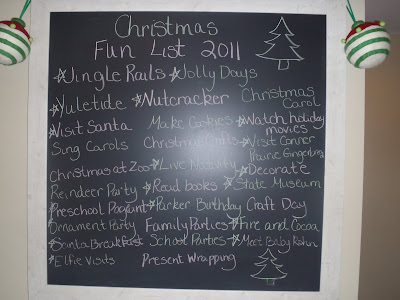 Christmas
Fun List 2011
Jingle Rails Jolly Days
Yuletide Nutcracker Christmas Carol
Visit Santa Make Cookies Watch holiday movies
Sing Carols Christmas Crafts Visit Conner Prairie Gingerbread
Christmas at Zoo Live Nativity Decorate
Reindeer Party Read books State Museum
Preschool Pageant Parker Birthday Craft Day
Ornament Party Family Parties Fire and Cocoa
Santa Breakfast School Parties Meet Baby
Elfie Visits Present Wrapping